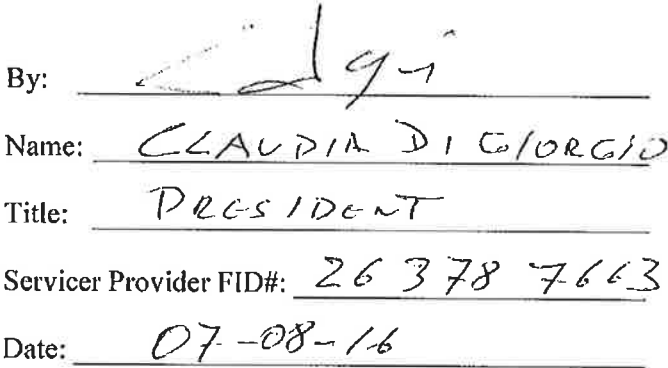 By:
Name: CLAUDIA DI GIORGIO
Title: PRESIDENT
Servicer Provider FID#: 26 378 7663
Date: 07-08-16